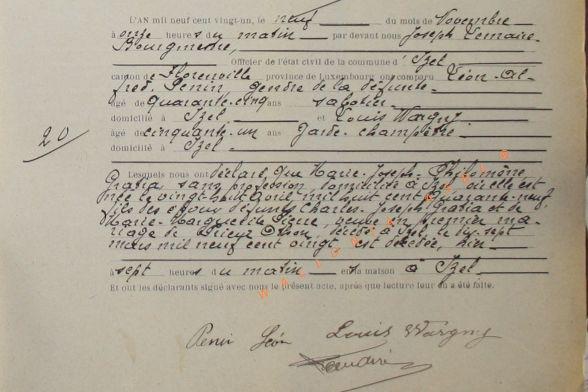 L'AN mil neuf cent vingt-un, le neuf du mois de Novembre
à onze heures du matin par devant nous Joseph Lemaire
Bourgmestre
Officier de l'état civil de la commune d'Izel
canton de Florenville province de Luxembourg ont comparu Léon-Al-
fred Penin, gendre de la défunte
âgé de quarante-cinq ans sabotier
domicilié à Izel et Louis Wargny
âgé cinquante-un ans Garde-champêtre
domicilié à Izel
20
Lesquels nous ont déclaré que Marie-Joseph-Philomène
sans profession, domiciliée à Izel, où elle est
née le vingt-huit Avril, mil huit cent quarante-neuf
fils des époux défunts Charles-Joseph et de
Marie- veuve en premier ma-
riage de décédé à Izel, le dix-sept
mars mil neuf cent vingt est décédée, hier
à sept heures du matin en sa maison à Izel
Et ont les déclarants signé avec nous le présent acte, après que lecture leur en a été faite.
Penin Léon Louis Wargny